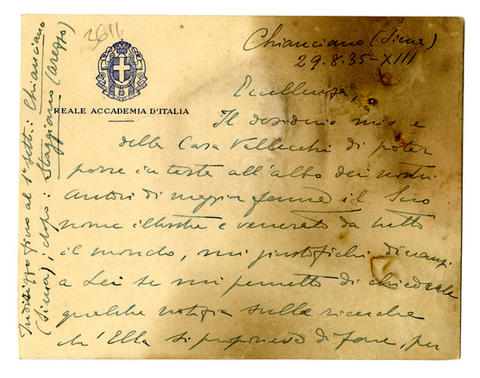 3611
REALE ACCADEMIA D'ITALIA
Chianciano (Siena)
29.8.35-XIII
Eccellenza,
Il desiderio mio e
della Casa Vallecchi di poter
porre in testa all'albo dei nostri
autori di
il Suo
nome illustre e venerato da tutto
il mondo, mi giustifichi dinanzi
a Lei se mi permetto di chiederle
qualche notizia sulle ricerche
ch'Ella si propone di fare, per
Indirizzo fino al 1° sett.: Chianciano
(Siena); dopo: Staggiano (Arezzo)